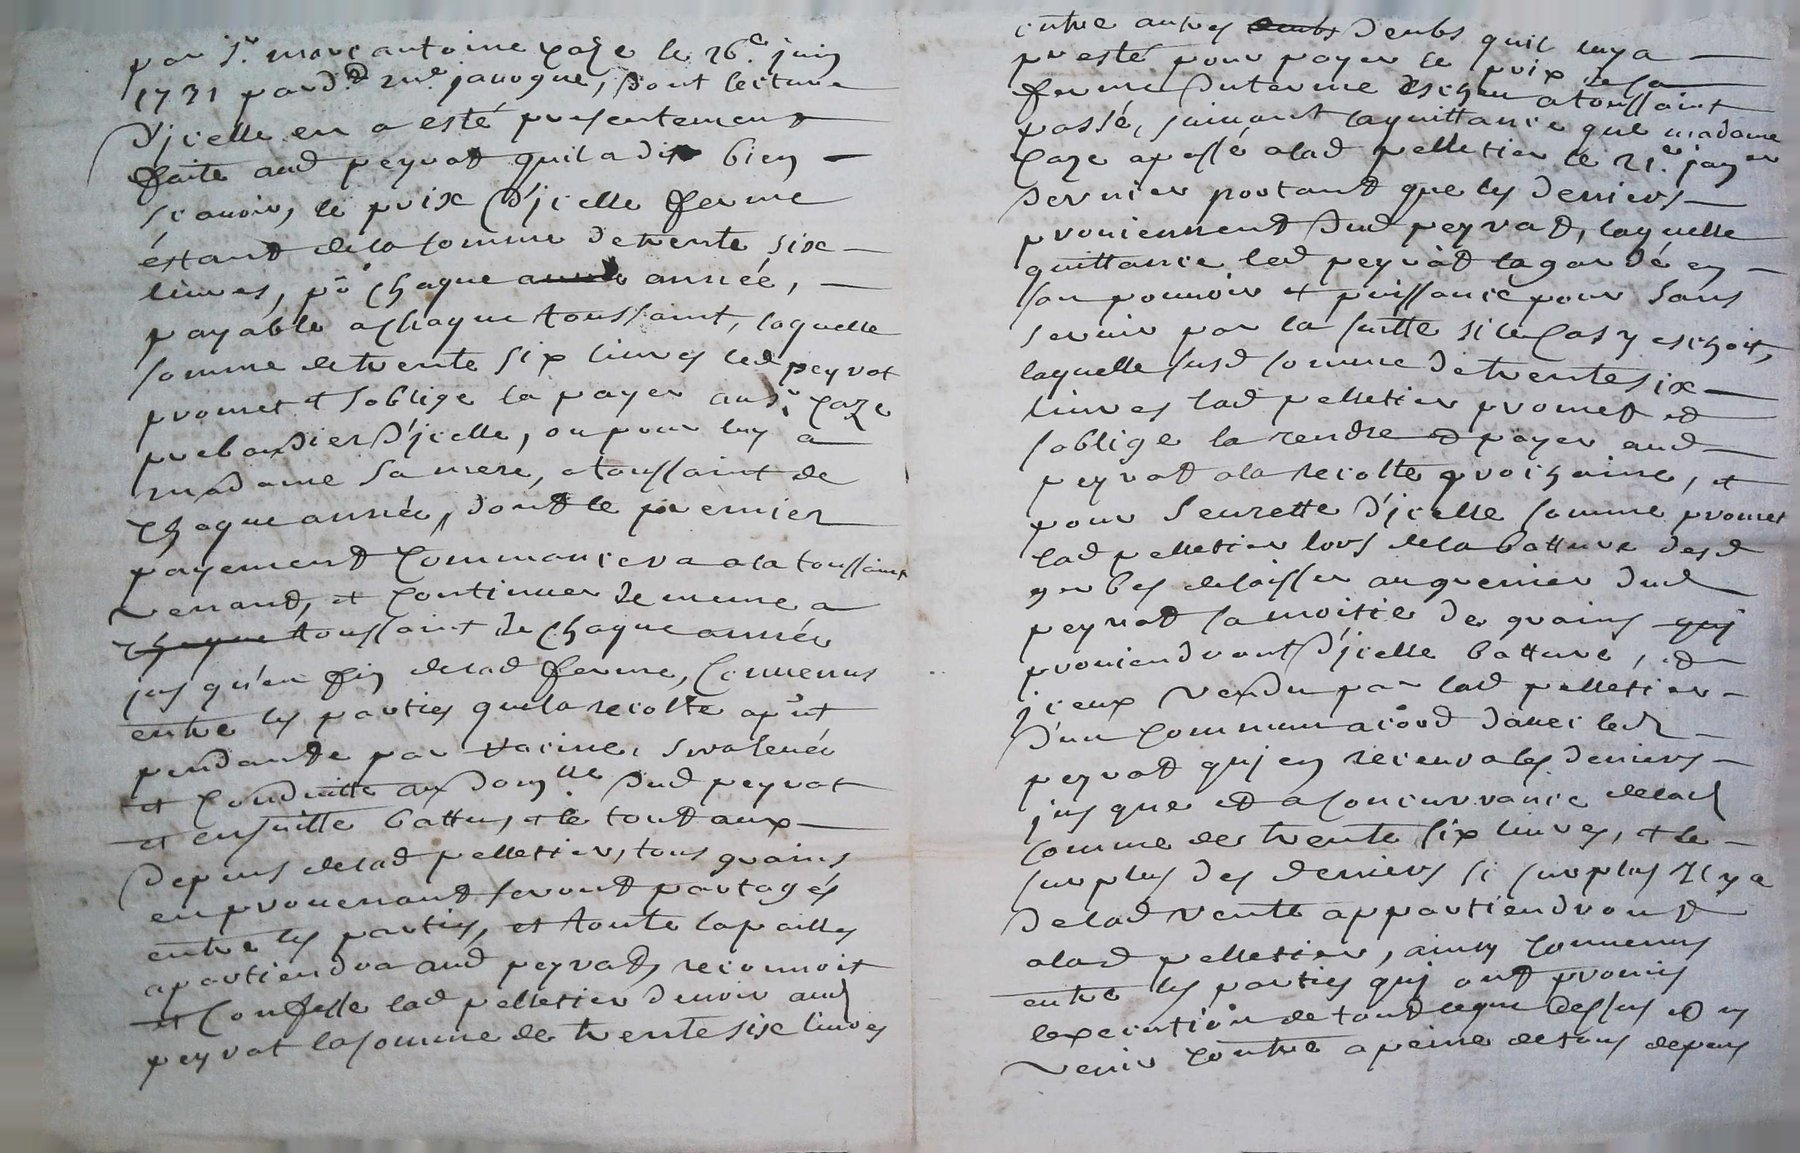 par Sr. marc antoine Caze le 26e. juin
1731 pard.d me. janogue, Dont lecture
D'jcelle en a esté presentement
faite aud peyrat quil a dit bien
scauoir, le prix D'jcelle ferme
éstant dela somme de trente six
liures, po chaque année,
payable a chaque toussaint, laquelle
somme de trente six liures led peyrat
promet et soblige la payer aud sr. Caze
prebandier D'jcelle, ou pour luy a
madame sa mere, a toussaint de
Chaque année, dont le premier
payement Commancera a la toussaint
venant, et Continuer de meme a
chaque toussaint de Chaque année
jus qu'en fin delad ferme, Conuenus
entre les parties quela recolte apnt
pendante par racine, sra leuée
et Conduitte au Domlle Dud peyrat
et ensuitte battus, et le tout aux
Depens delad pelletier, tous grains
en prouenant seront partagés
entre les parties, et toute la pailles
apartiendra aud peyrat, reconnoit
et Confesse lad pelletier deuoir aud
peyrat la somme de trente six liures
entre autres deubs quil luy a
presté pour payer le prix de sa
ferme Du terme escheu a toussaint
passé, suiuant la quittance que madame
Caze a passé a lad pelletier le 21e. janer
Dernier portant que les deniers
prouiennent Dud peyrat, laquelle
quittance led peyrat la gardé en
son pouuoir et puissance pour sans
seruir par la suitte si le Cas y eschoit,
laquelle susd somme de trente six
liures lad pelletier promet et
soblige la rendre et payer aud
peyrat a la recolte prochaine, et
pour seurette D'jcelle somme promet
lad pelletier lors dela batture desd
gerbes delaisser au grenier dud
peyrat sa moitie de grains quj
prouiendront D'jcelle batture, et
jceux vendu par lad pelletier
D'un Commun acord d'auec led
peyrat quj en receura les deniers
jus que et a Concurrance delad
somme de trente six liures, et le
surplus des deniers si surplus Il y a
De lad vente appartiendront
a lad pelletier, ainsy Conuenus
entre les parties quj ont promis
lexecution de tout ceque dessus et ny
venir Contre a peine de tous depens